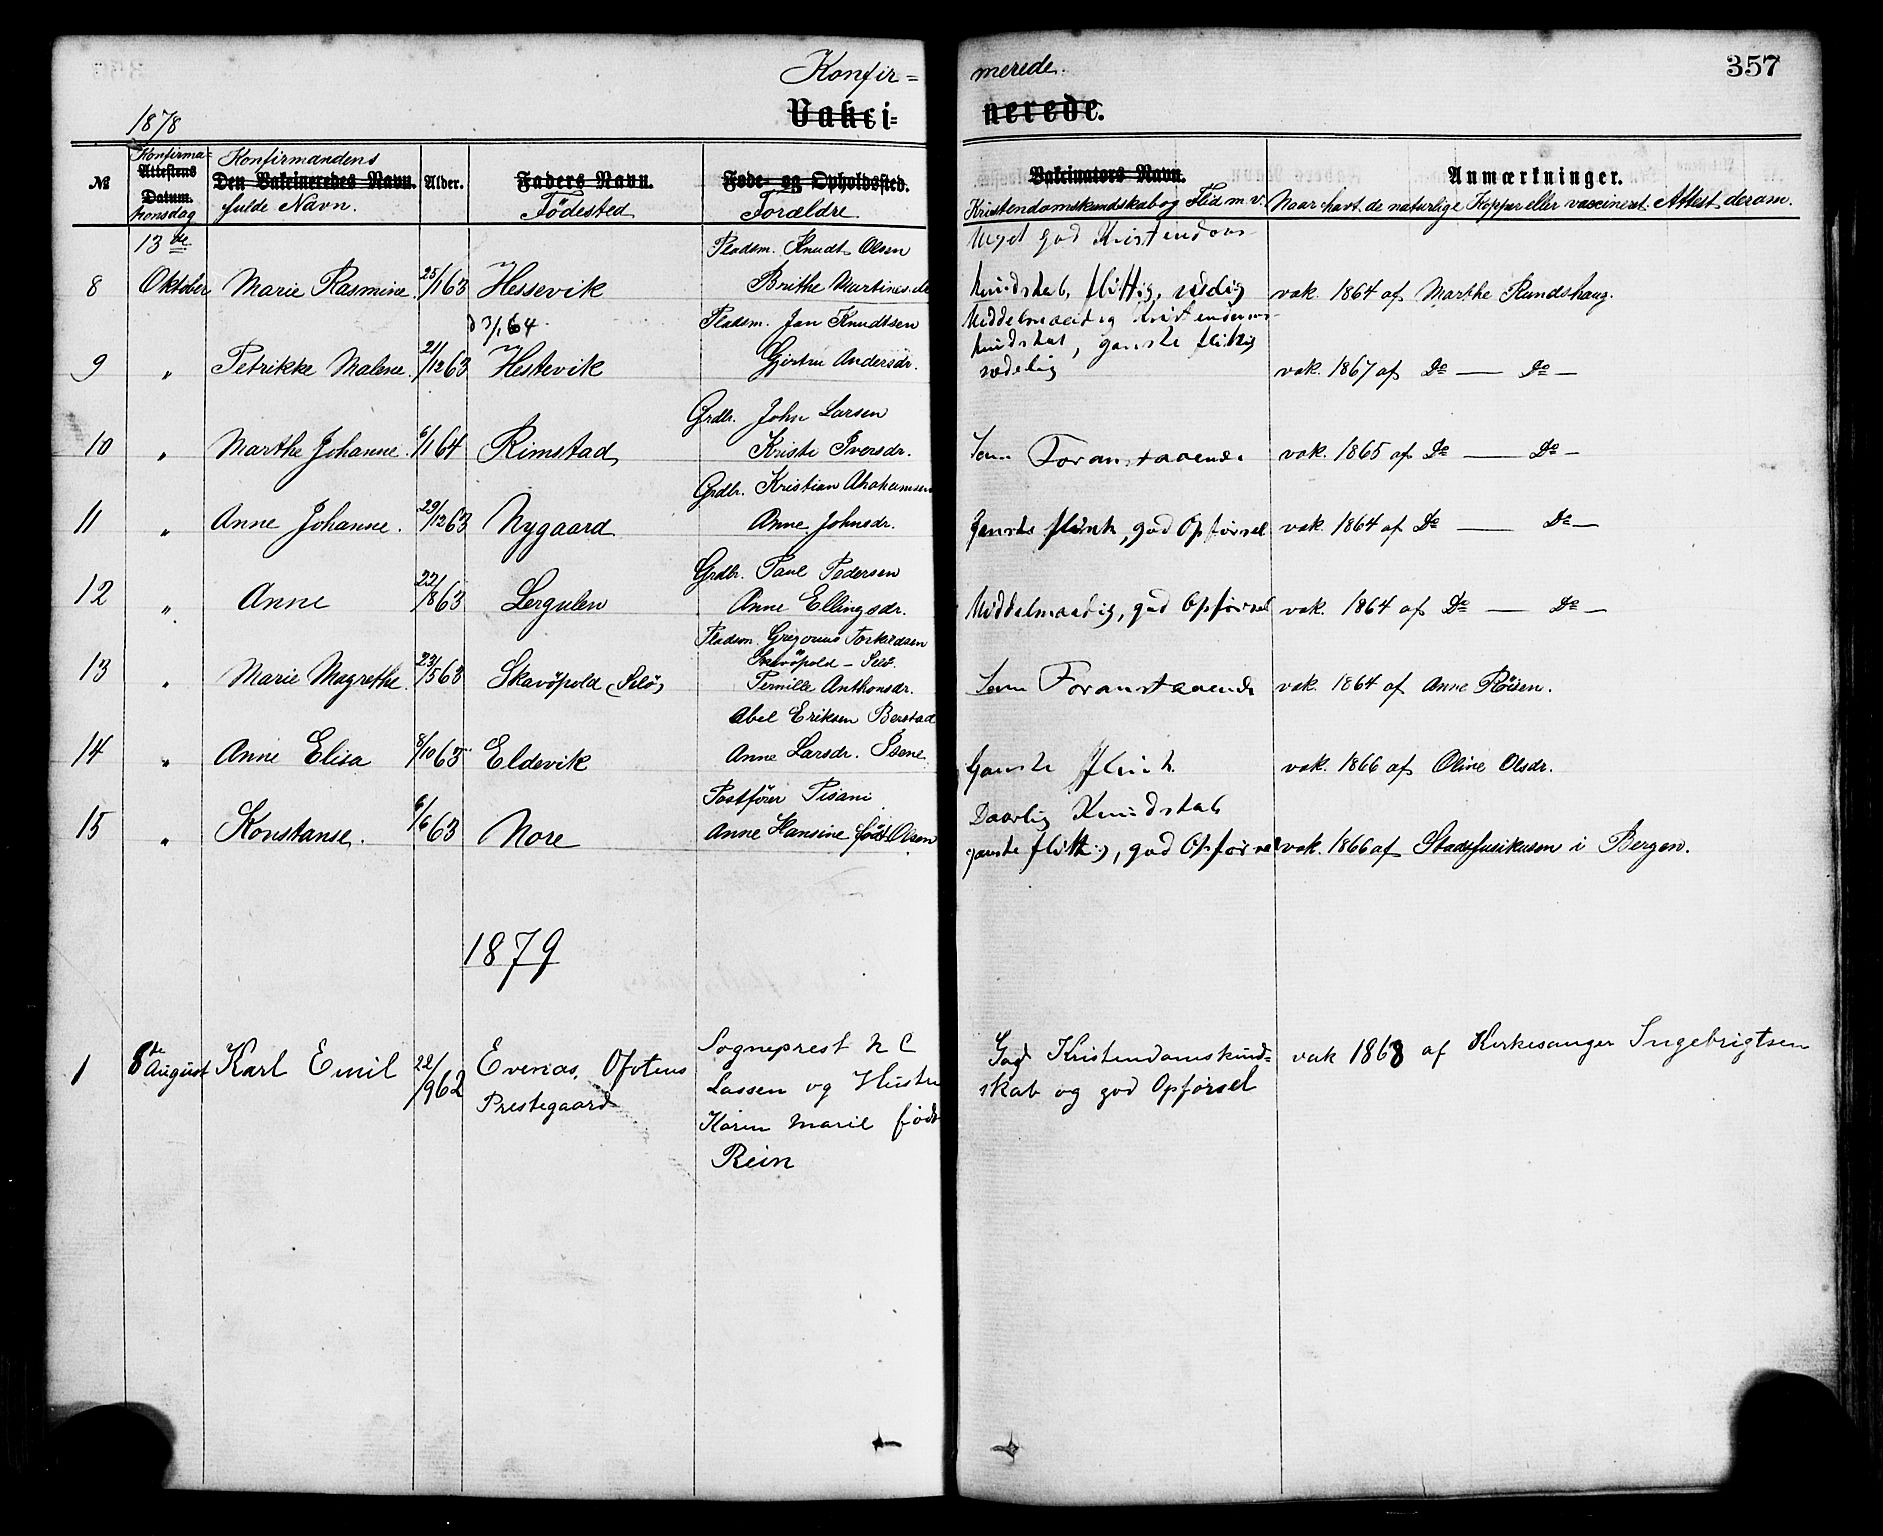 Konfir= merede. 357
1878 Vakci= nerede.
№ Konfirma= Attestens Datum. Konfirmandens Den Vakcineredes Navn. fulde Navn. Alder. Faders Navn. Fødested Føde- og Opholdssted. Forældre Vakcinators Navn. Kristendomskundskab og Flid m. v. Anmærkninger. Naar havt de naturlige Kopper eller vaccineret. Attest derom.
13de Pladsm. Knudt Olsen Meget god Kristendoms-
8 Oktober Marie Rasmine. 25/1 63 Hessevik Brithe kundskab, flittig, sædelig vak. 1864 af Marthe Rundshaug.
d 3/1 64. Pladsm. Jan Knudtsen Middelmaadig Kristendoms-
kundskab, ganske flittig
9 " Petrikke Malene. 21/12 63 Hestevik Gjertru Andersdr. sædelig vak. 1867 af Do — Do —
Grdbr. John Larsen
10 " Marthe Johanne. 6/1 64 Rimstad Kristi Iversdr. Som Foranstaaende vak. 1865 af Do — Do —
Grdbr. Kristian Abrahamsen
11 " Anne Johanne. 29/12 63 Nygaard Anne Johnsdr. Ganske flink, god Opførsel vak. 1864 af Do — Do —
Grdbr. Paul Pedersen
12 " Anne 22/8 63 Lergulen Anne Ellingsdr. Middelmaadig, god Opførsel vak. 1864 af Do — Do —
Pladsm. Gregorius Torkildsen
Skavöpold - Selö.
13 " Marie Magrethe. 23/5 63 Skavöpold (Selö) Pernille Anthonsdr. Som Foranstaaende vak. 1864 af Anne Röisen.
Abel Eriksen Berstad
14 " Anne Elisa 8/10 63 Eldevik Anne Larsdr. Isene Ganske flink. vak. 1866 af Oline Olsdr.
Postfører Pisani Daarlig Kundskab
15 " Konstanse. 6/6 63 Nore Anne Hansine født Olsen ganske flittig, god Opførsel vak. 1866 af Stadsfusikusen i Bergen.
1879
1 8de August Karl Emil 22/9 62 Evenæs, Ofotens Sogneprest N C God Kristendomskund= vak 1868 af Kirkesanger Ingebrigtsen
Prestegaard Lassen og Hustru skab og god Opførsel
Karen Marie født
Rein